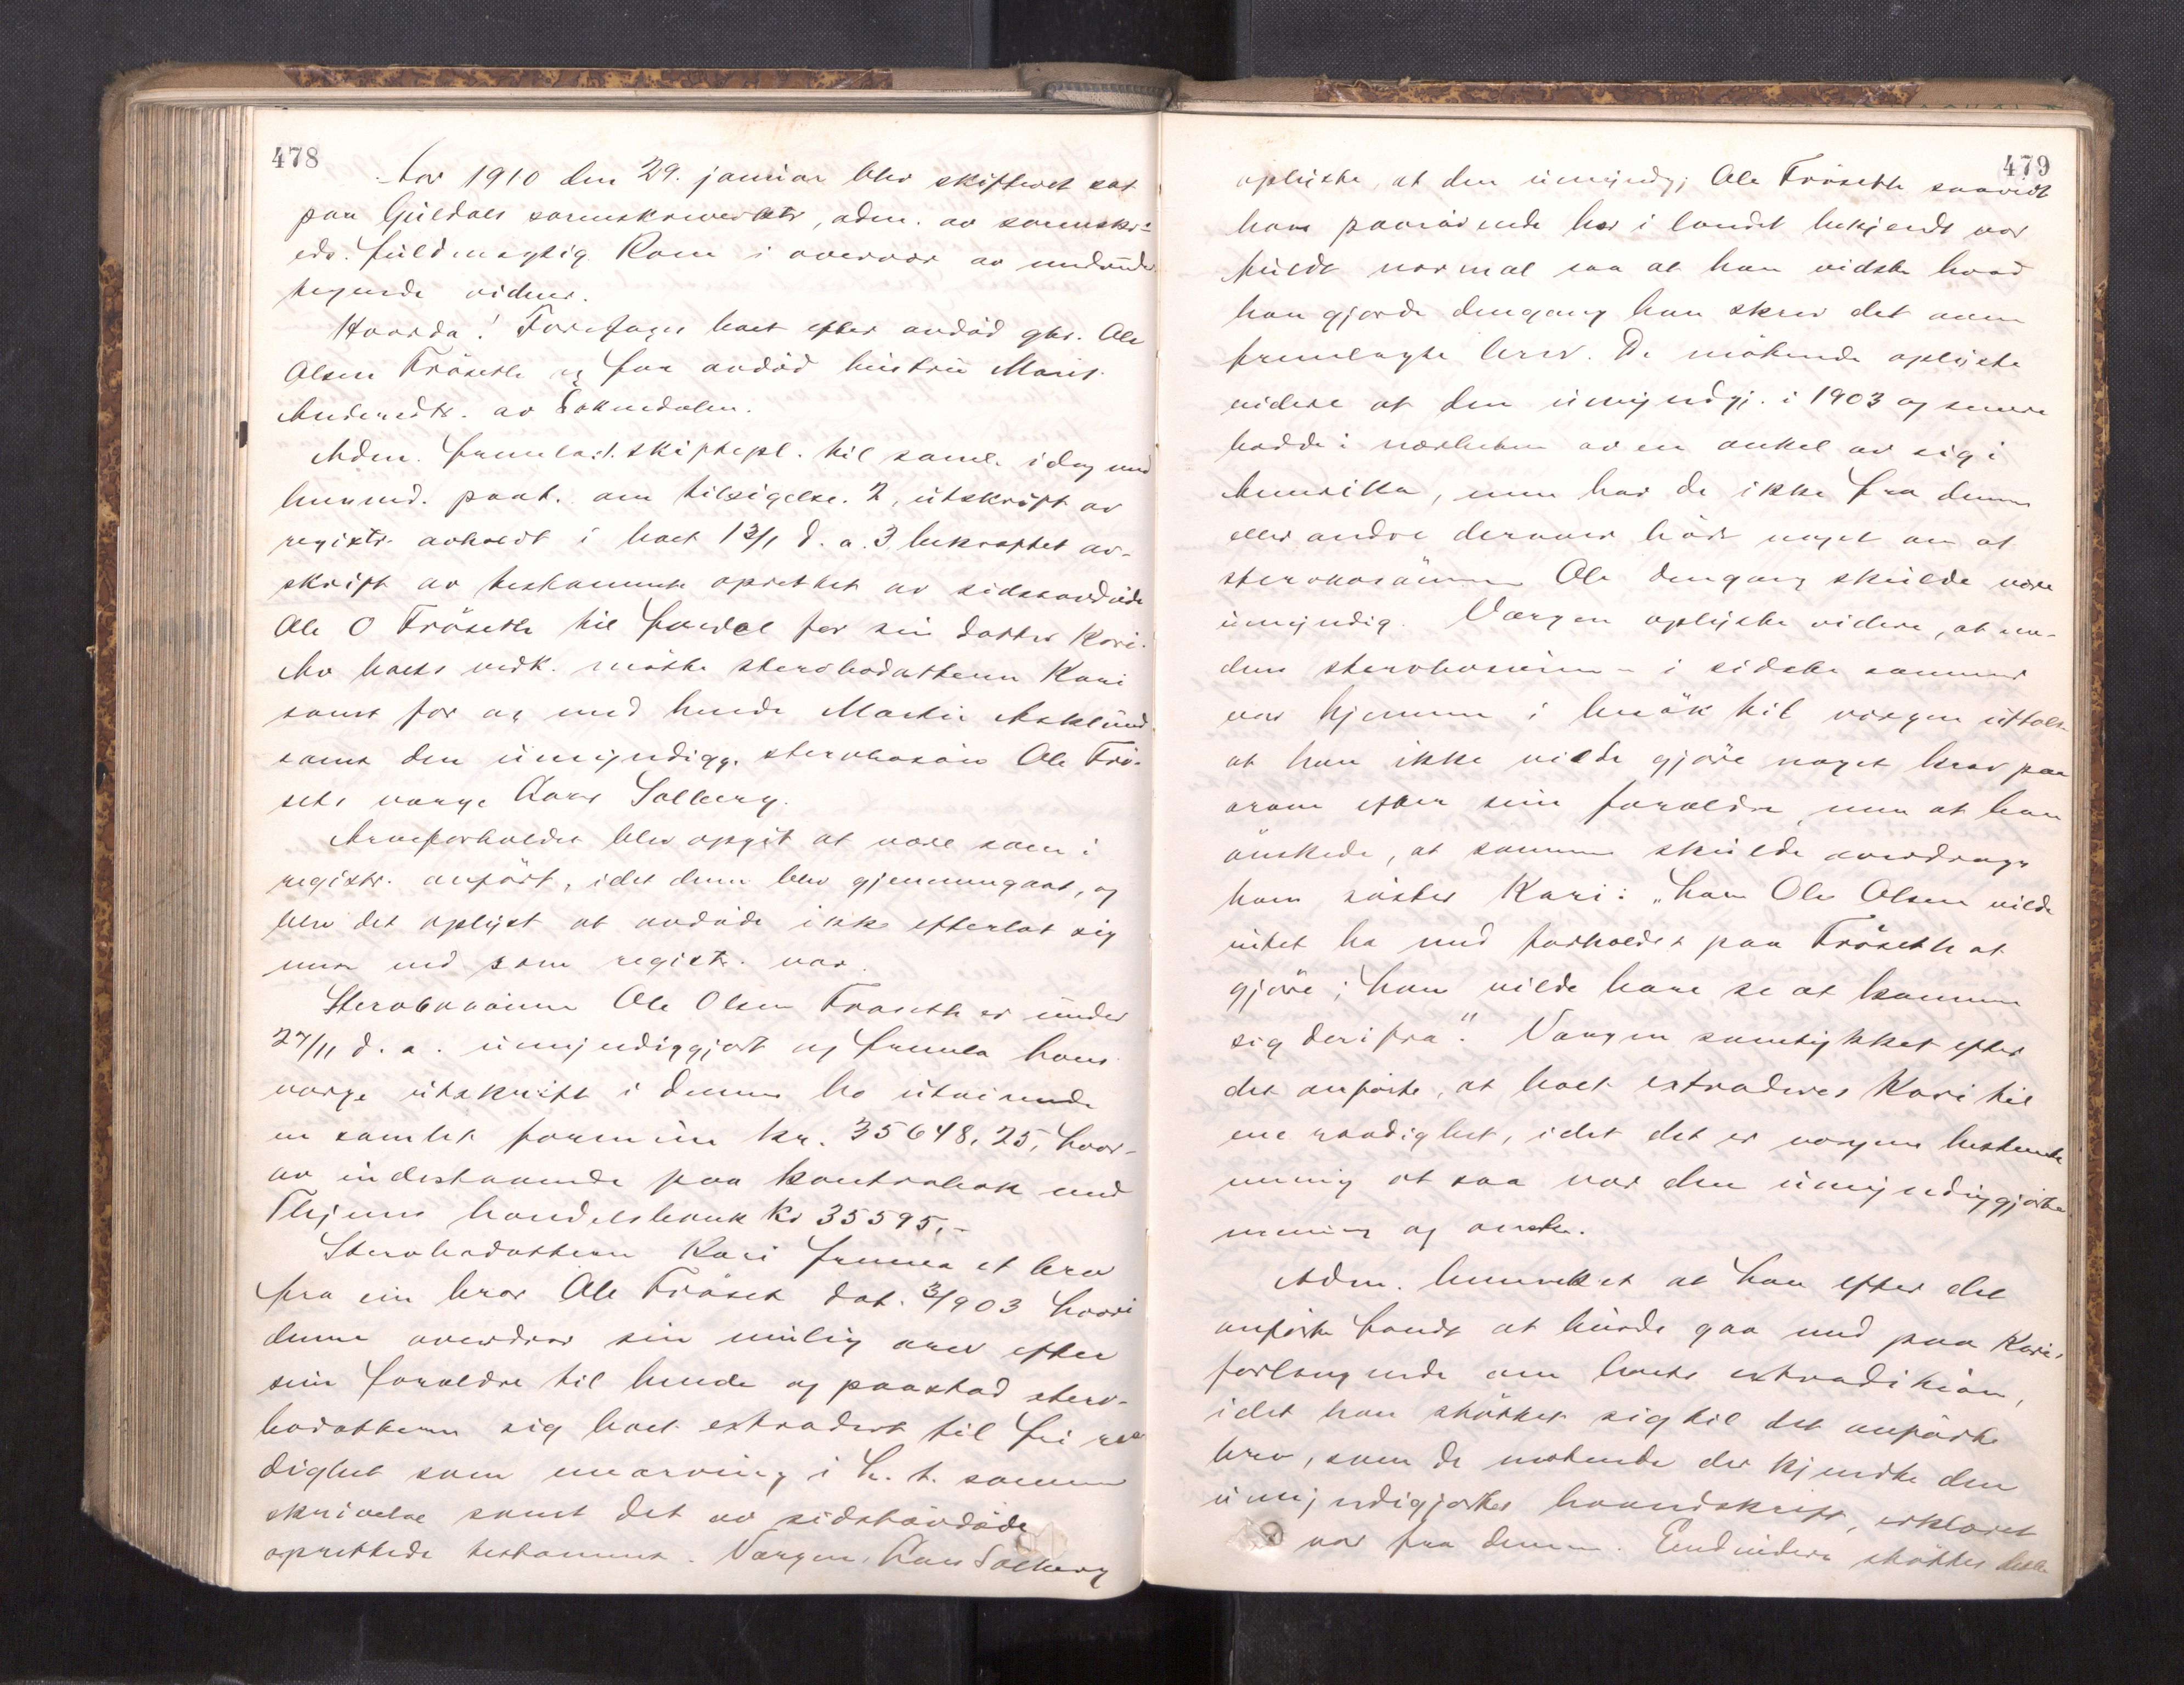 478
Aar 1910 den 29. januar blev skifteret sat
paa Guldals sorenskriverktr, adm. av sorenskr:
edv. fuldmægtig Rom i overvær av undertegnede
tegnede vidner.
Hvorda! Foretages boet efter avdød gbr. Ole
Olsen Frøseth og før avdød hustru Marit
Andersdtr. av Soknedalen.
Adm. fremla: 1. skiftepl. til saml. idag med
bemerkn. paat. om tilsigelse. 2, utskrift av
registr. avholdt i boet 13/1 d. a. 3, bekræftet av-
skrift av testamente oprettet av sidstavdøde
Ole O Frøseth til fordel for sin datter Kari.
Av boets vedk. møtte stervbodatteren Kari
samt for og med hende Martin Asklund
samt den umyndiggj. stervbosøn Ole Frø-
sets værge Lars Solberg.
Arveforholdet blev opgit at være som i
registr. anført, idet denne blev gjennemgaat, og
blev det oplyst at avdøde ikke efterlot sig
mer end som registr. var.
Stervbosønnen Ole Olsen Frøseth er under
27/11 d. a. umyndiggjort og fremla hans
værge utskrift i denne bo utvisende
en samlet formue kr. 35648,25, hvor-
av indestaaende paa kontrabok med
Thjems handelsbank kr 35595,-
Stervbodatteren Kari fremla et brev
fra sin bror Ole Frøset dat. 3/903 hvori
denne overdrar sin mulig arv efter
sine forældre til hende og paastod sterv-
bodatteren sig boet extradert til fri raa-
dighet som enearving i h. t. samme
skrivelse samt det av sidstavdøde
oprettede testamente. Værgen, Lars Solberg
479
oplyste, at den umyndg; Ole Frøseth saavidt
hans paarørende her i landet bekjendt var
fuldt normal saa at han vidste hvad
han gjorde dengang han skrev det oven
fremlagte brev. De møtende oplyste
videre at den umyndgj. i 1903 og senere
bodde i nærheten av en onkel av sig i
Amerikka, men har de ikke fra denne
eller andre derover hørt noget om at
stervbosønnen Ole dengang skulde være
umyndig. Værgen oplyste videre, at en-
dens stervbosønn - i sidste sommer
var hjemme i besøk hit værgen uttalte
at han ikke vilde gjøre noget krav paa
arven efter sine forældre, men at han
ønskede, at samme skulde overdrages
hans søster Kari: „han Ole Olsen vilde
intet ha med forholdet paa Frøseth at
gjøre; han vilde bare se at komme
sig derifra". Værgen samtykket efter
det anførte, at boet extraderes Kari til
ene raadighet, idet det er værgens bestemte
mening at saa var den umyndiggjortes
mening og ønske.
Adm. bemerket at han efter det
anførte fandt at burde gaa med paa Karis
forlangende om boets extradition,
idet han støttet sig til det anførte
brev, som de møtende der kjendte den
umyndigjortes haandskrift, erklæret
var fra denne. Endvidere støttes dette